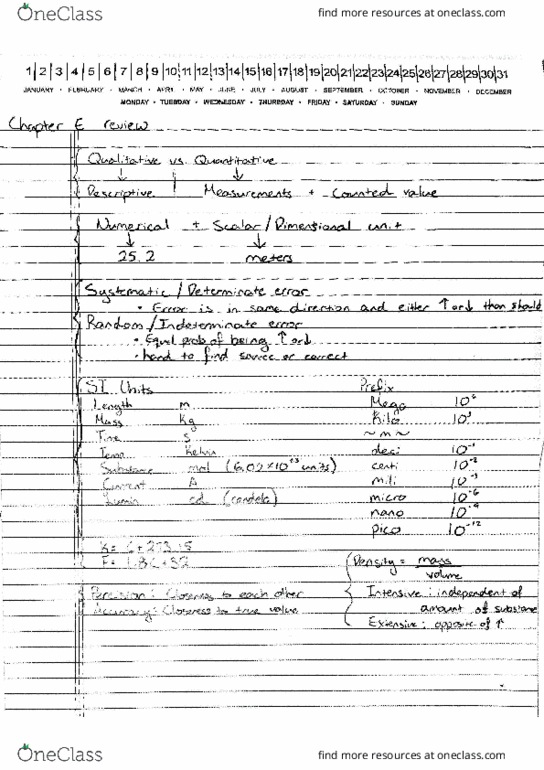 OneClass find more resources at oneclass.com
1 2 3 4 5 6 7 8 9 10 11 12 13 14 15 16 17 18 19 20 21 22 23 24 25 26 27 28 29 30 31
JANUARY • FEBRUARY • MARCH • APRIL • MAY • JUNE • JULY • AUGUST • SEPTEMBER • OCTOBER • NOVEMBER • DECEMBER
MONDAY • TUESDAY • WEDNESDAY • THURSDAY • FRIDAY • SATURDAY • SUNDAY
Chapter E review
Qualitative vs. Quantitative
↓ ↓
Descriptive Measurements + Counted value
Numerical + Scalar/Dimensional unit
↓ ↓
25.2 meters
Systematic / Determinate error
• Error is in same direction and either ↑ or ↓ than should
Random / Indeterminate error
• Equal prob of being ↑ or ↓
• hard to find source or correct
SI Units Prefix
Length m Mega 10⁶
Mass Kg Kilo 10³
Time s ~m~
Temp Kelvin desi 10⁻¹
Substance mol (6.02×10²³ units) centi 10⁻²
Current A mili 10⁻³
Lumin cd (candela) micro 10⁻⁶
nano 10⁻⁹
pico 10⁻¹²
K = C + 273.15
F = 1.8C + 32
Density = mass
volume
Percision: Closeness to each other
Accuracy: Closeness to true value
Intensive: independent of
amount of substane
Extensive: opposite of ↑
OneClass find more resources at oneclass.com